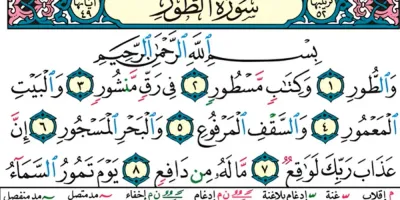 ترتيبها ٥٢ سُورَةُ الطُّورِ آياتها ٤٩
بِسْمِ اللَّهِ الرَّحْمَٰنِ الرَّحِيمِ
وَٱلطُّورِ ١ وَكِتَٰبٍ مَّسْطُورٍ ٢ فِى رَقٍّ مَّنشُورٍ ٣ وَٱلْبَيْتِ
ٱلْمَعْمُورِ ٤ وَٱلسَّقْفِ ٱلْمَرْفُوعِ ٥ وَٱلْبَحْرِ ٱلْمَسْجُورِ ٦ إِنَّ
عَذَابَ رَبِّكَ لَوَٰقِعٌ ٧ مَّا لَهُۥ مِن دَافِعٍ ٨ يَوْمَ تَمُورُ ٱلسَّمَآءُ
م إقلاب غنة إدغام بلاغنة ن م إدغام ن م إخفاء مد متصل مد منفصل